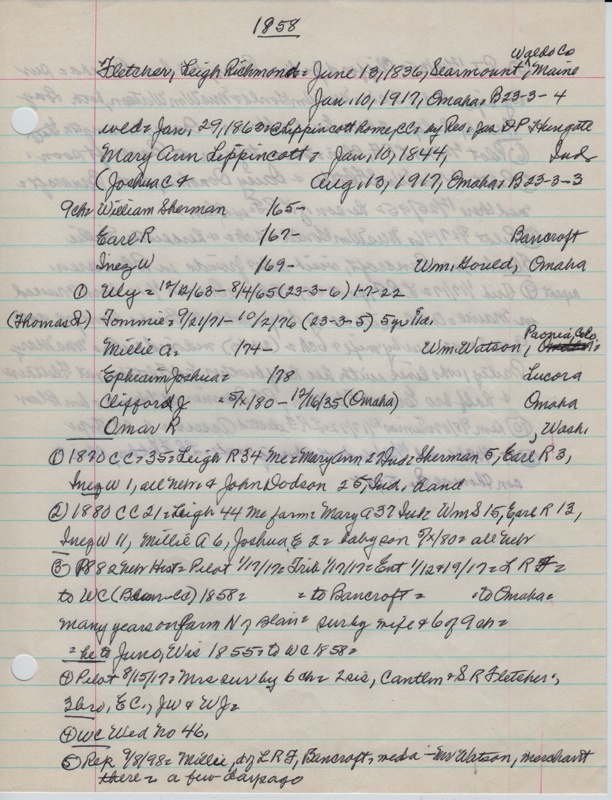 1858
Waldo Co
Fletcher, Leigh Richmond = June 13, 1836, Searmount, Maine
Jan, 10, 1917, Omaha = B23-3-4
wed = Jan, 29, 1863 = @ Lippincott home, CC = by Rev = Jas
Mary Ann Lippincott = Jan, 10, 1844, Ind
(Joshua C & Aug, 13, 1917, Omaha = B 23-3-3
9ch = William Sherman /65-
Earl R /67- Bancroft
Inez W /69- Wm. Gould, Omaha
① Uly = 12/12/63 - 8/4/65 (23-3-6) 1-7-22
(Thomas) Tommie = 9/21/71 - 10/2/76 (23-3-5) 5yr 11da.
Millie A = /74- Wm. Watson, Peoria, Colo.
Ephraim Joshua = /78 Lucora
Clifford J = 5/x/80 - 12/16/35 (Omaha) Omaha
Omar R , Wash.
① 1870 CC = 35 = Leigh R 34 Me = Mary Ann 27 Ind = Sherman 5, Earl R 3,
Inez W 1, all Nebr = & John Dodson 25, Ind, hand
② 1880 CC 21 = Leigh 44 Me farm = Mary A 37 Ind = Wm S 15, Earl R 12,
Inez W 11, Millie A 6, Joshua E 2 = baby son 5/x/80 = all Nebr
③ = Pilot 1/17/17 = Trib 1/17/17 = Ent 1/12 & 19/17 = L R F =
to WC ( ) 1858 = = to Bancroft = = to Omaha =
many years on farm N of Blair = sur by wife & 6 of 9 ch =
= he to Juno, Wis 1855 = to WC 1858 =
④ Pilot 8/15/17 = Mrs sur by 6 ch = 2 sis, Cantlin & S. R Fletcher;
3 bro, E C., J W & W J =
④ WC Wed No 46,
⑤ Rep 9/8/98 = Millie, d of L R F, Bancroft, med = Mr Watson, merchant
there = a few da ago